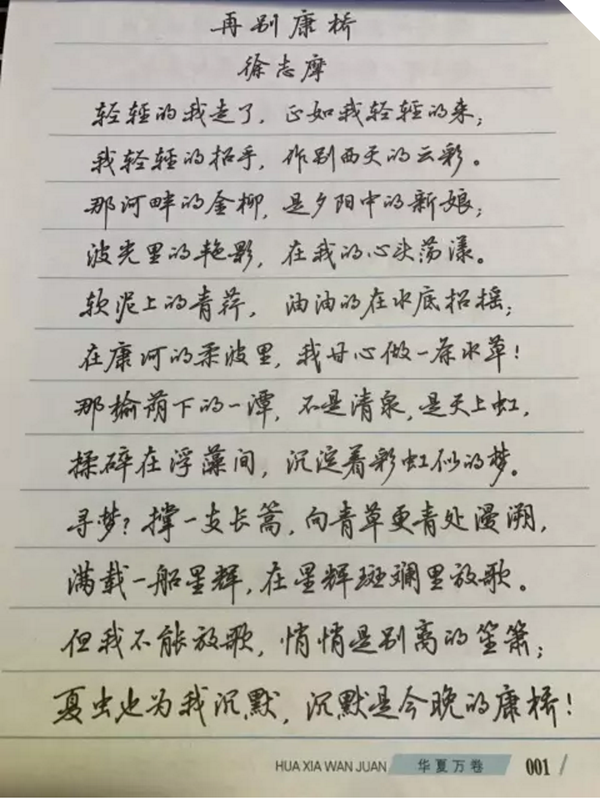 再别康桥
徐志摩
轻轻的我走了，正如我轻轻的来；
我轻轻的招手，作别西天的云彩。
那河畔的金柳，是夕阳中的新娘；
波光里的艳影，在我的心头荡漾。
软泥上的青荇，油油的在水底招摇；
在康河的柔波里，我甘心做一条水草！
那榆荫下的一潭，不是清泉，是天上虹，
揉碎在浮藻间，沉淀着彩虹似的梦。
寻梦？撑一支长篙，向青草更青处漫溯，
满载一船星辉，在星辉斑斓里放歌。
但我不能放歌，悄悄是别离的笙箫；
夏虫也为我沉默，沉默是今晚的康桥！
HUA XIA WAN JUAN 华夏万卷 001 /